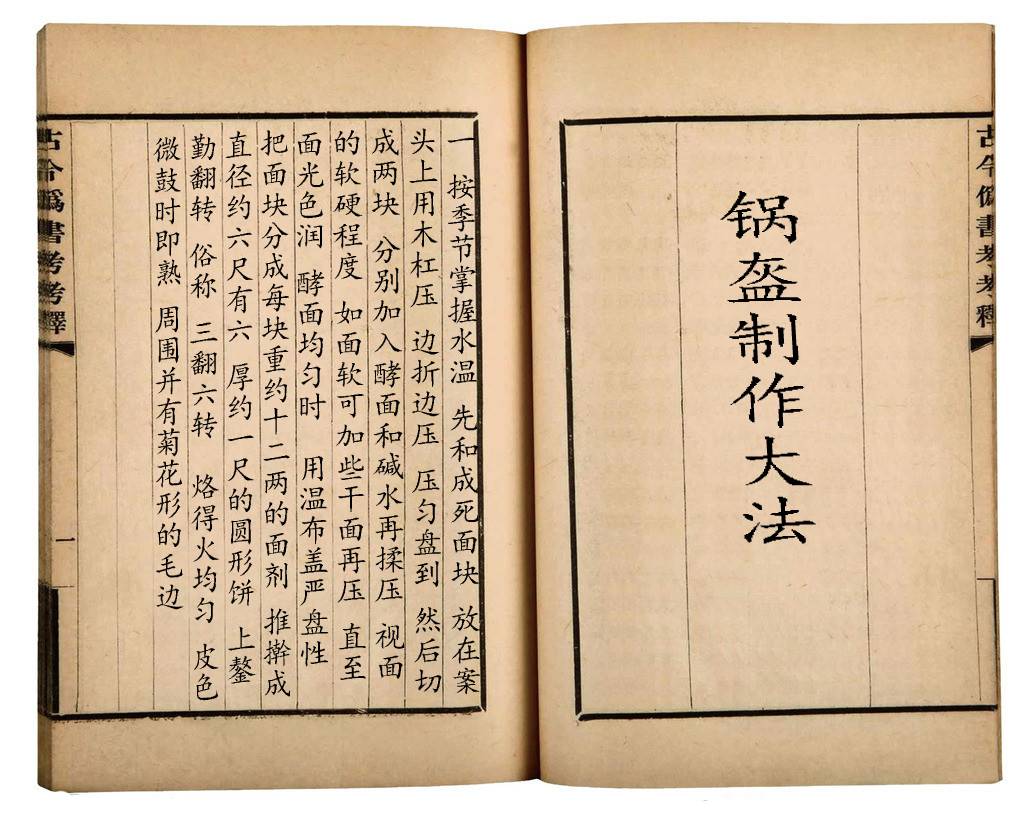 锅盔制作大法
一 按季节掌握水温 先和成死面块 放在案
头上用木杠压 边折边压 压匀盘到 然后切
成两块 分别加入酵面和碱水再揉压 视面
的软硬程度 如面软可加些干面再压 直至
面光色润 酵面均匀时 用温布盖严盘性
把面块分成每块重约十二两的面剂 推擀成
直径约六尺有六 厚约一尺的圆形饼 上鏊
勤翻转 俗称 三翻六转 烙得火均匀 皮色
微鼓时即熟 周围并有菊花形的毛边
古今偽書考考釋
古今偽書考考釋
一